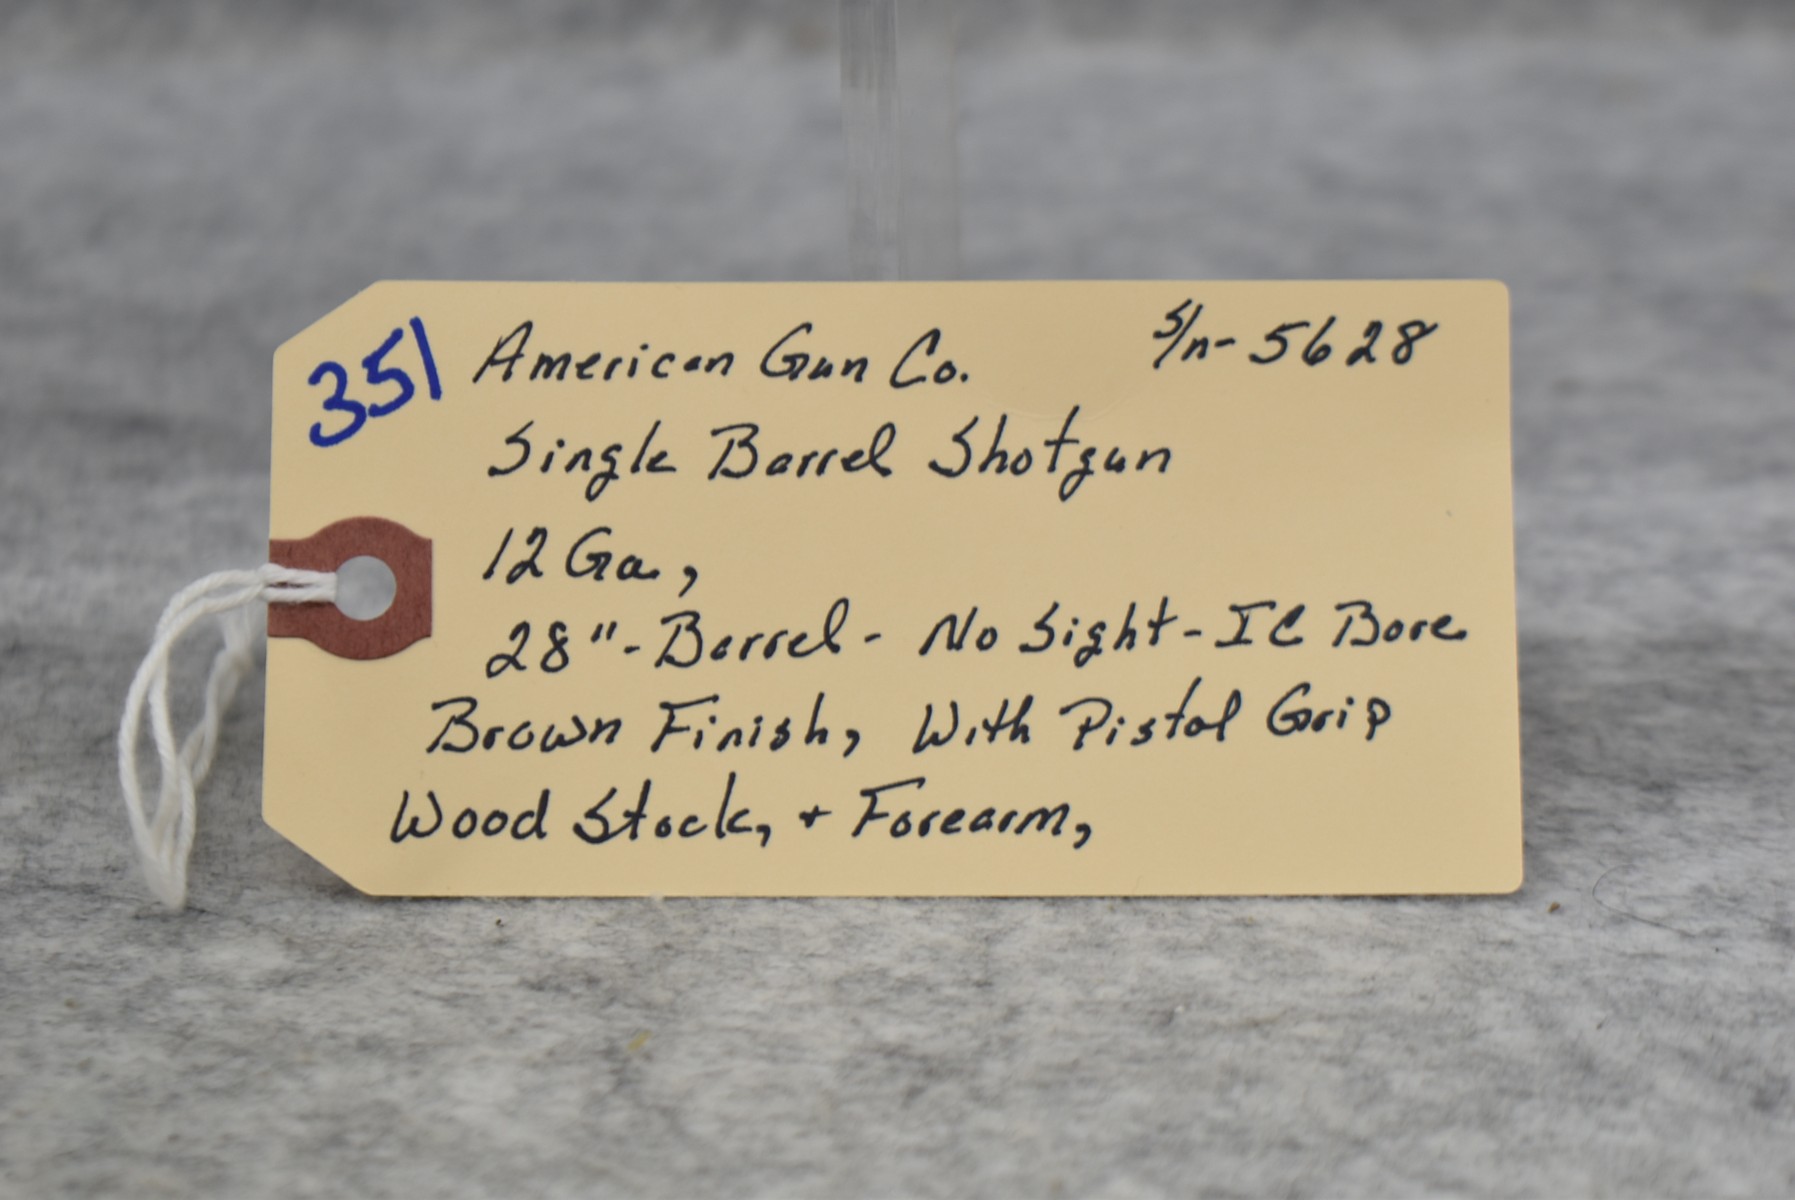 351 American Gun Co. S/n- 5628
Single Barrel Shotgun
12 Ga.,
28"-Barrel- No Sight- IC Bore
Brown Finish, With Pistol Grip
Wood Stock, + Forearm,